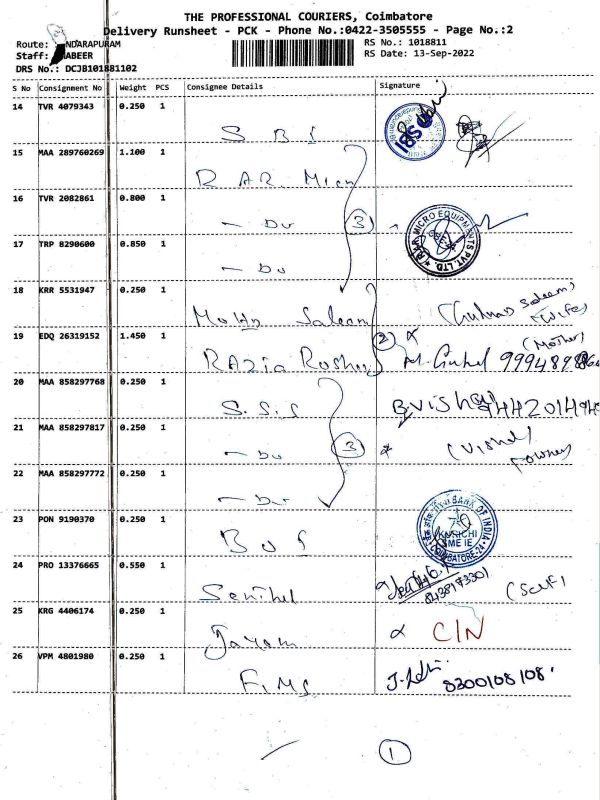 THE PROFESSIONAL COURIERS, Coimbatore
Delivery Runsheet - PCK - Phone No.:0422-3505555 - Page No.:2
Route: NDARAPURAM
RS No.: 1018811
Staff: ABEER
RS Date: 13-Sep-2022
DRS No.: DCJB101881102
S No Consignment No Weight PCS Consignee Details Signature
14 TVR 4079343 0.250 1 S B S
15 MAA 289760269 1.100 1 R AR Micn
16 TVR 2082861 0.800 1 - Do (3)
17 TRP 8290600 0.850 1 - Do
R.A.R MICRO EQUIPMENTS PVT. LTD.
18 KRR 5531947 0.250 1 Mohn Saleem (wife)
19 EDQ 26319152 1.450 1 RAZia Roshan (2) (Mother)
20 MAA 858297768 0.250 1 S.S.S B.Visha
21 MAA 858297817 0.250 1 - Do (3) (Vishal)
owner
22 MAA 858297772 0.250 1 - Do
23 PON 9190370 0.250 1 BOI
BANK OF INDIA
KURICHI
SME IE
COIMBATORE-24
24 PRO 13376665 0.550 1 Senthil 8438973301 (Self)
25 KRG 4406174 0.250 1 Jayam C/N
26 VPM 4801980 0.250 1 FIMS 8300108108.
(1)